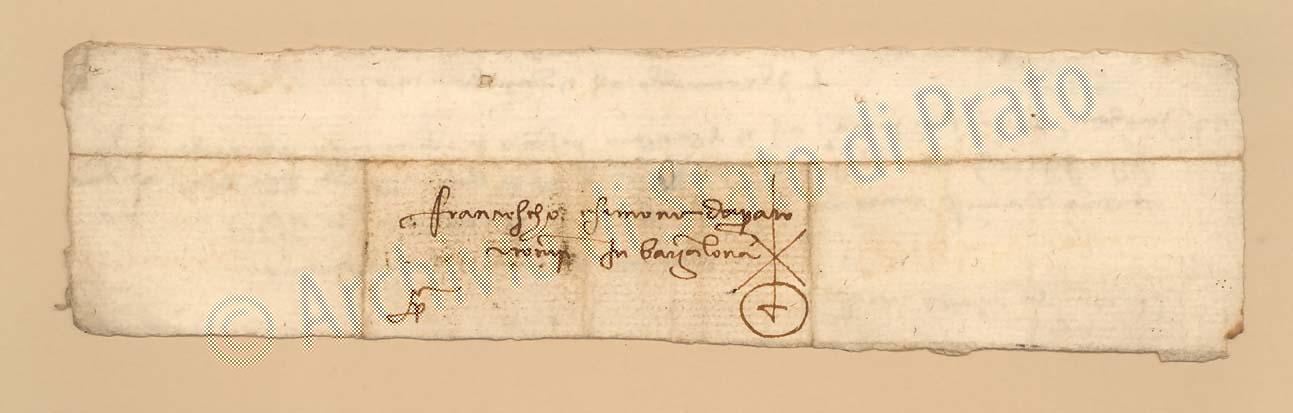 Franciescho e Simone da Prato
e conp. in Barzalona
p
© Archivio di Stato di Prato